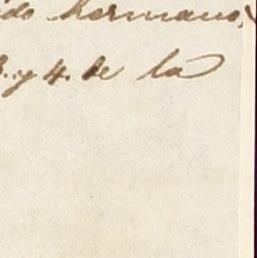 ido Hermano,
3. y 4. de la